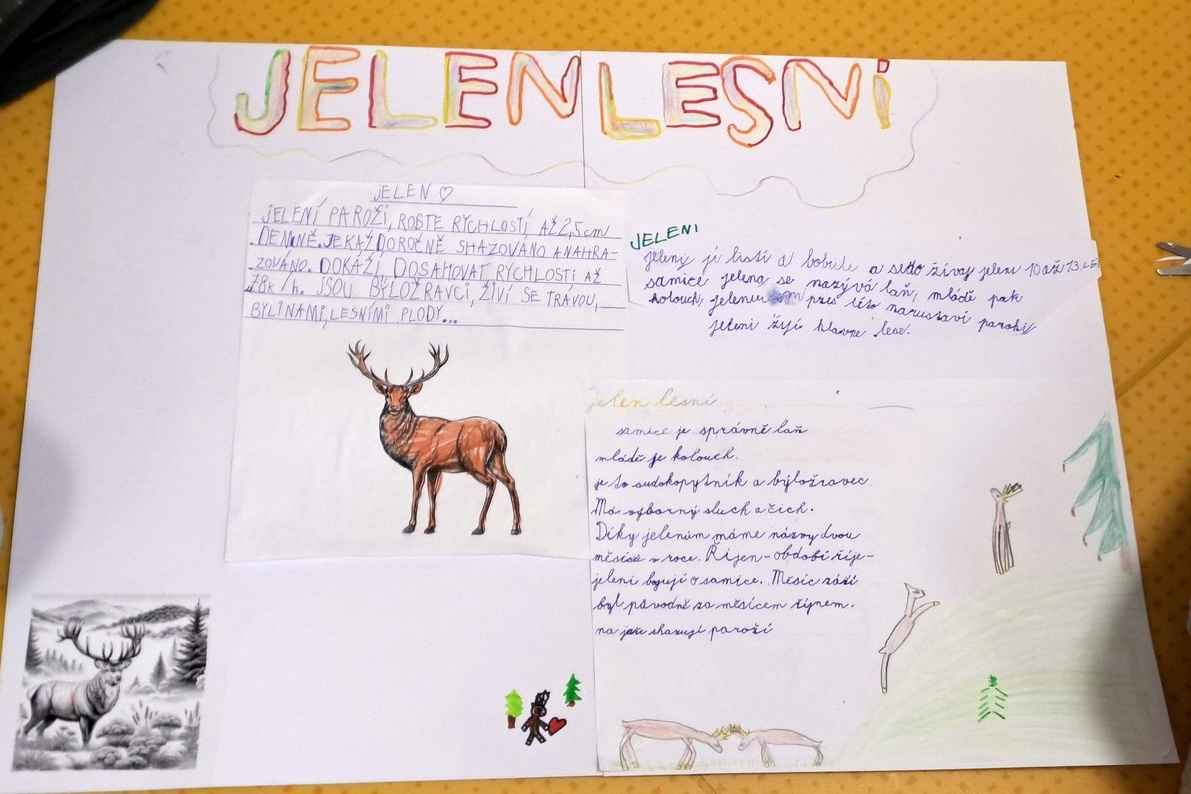 JELEN LESNí
JELEN ♡
JELENÍ PAROŽÍ, ROSTE RYCHLOSTÍ AŽ 2,5 cm
DENNĚ. JE KAŽDOROČNĚ SHAZOVÁNO A NAHRA-
ZOVÁNO. DOKÁŽÍ, DOSAHOVAT RYCHLOSTI AŽ
78k/h. JSOU BÝLOŽRAVCI, ŽIVÍ SE TRÁVOU,
BYLINAMI, LESNÍMI PLODY...
JELENI
jeleny jí listí a bobule a žívaj jeleni 10 až 13. let
samice jelena se nazývá laň, mládě pak
kolouch, přes léto narustaví parohy
jeleni žijí hlavne lese.
Jelen lesní
samice je správně laň
mládě je kolouch.
je to sudokopytník a býložravec.
Má výborný sluch a čich.
Díky jelenům máme názvy dvou
měsíců v roce. Říjen - období říje -
jeleni bojují o samice. Měsíc září
byl původně za měsícem říjnem.
na jaře shazují paroží